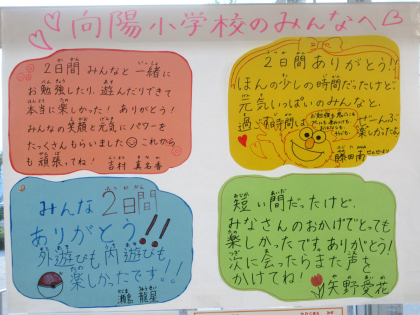 向陽小学校のみんなへ
2日間みんなと一緒に
お勉強したり、遊んだりできて
本当に楽しかった！ありがとう！
みんなの笑顔と元気にパワーを
たっくさんもらいました これから
も頑張ってね！
吉村 真名香
2日間ありがとう!!
ほんの少しの時間だったけど、
元気いっぱいのみんなと、
過ごす時間は、
ぜーんぶ
楽しかったです。
藤田南
みんな2日間
ありがとう!!
外遊びも内遊びも
楽しかったです!!
龍星
短い間だったけど、
みなさんのおかげでとても
楽しかったです。ありがとう！
次に会ったらまた声を
かけてね！
矢野愛花